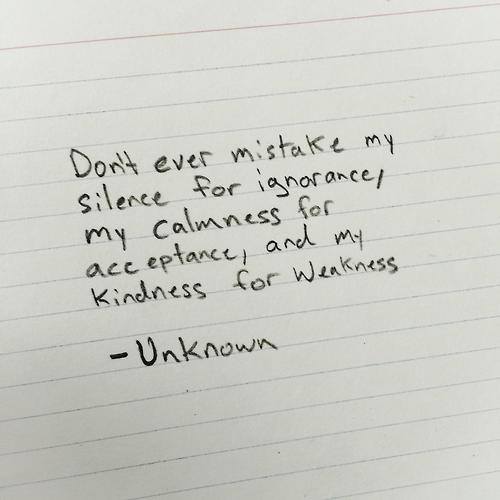 Don't ever mistake my
silence for ignorance,
my calmness for
acceptance, and my
kindness for weakness
- Unknown